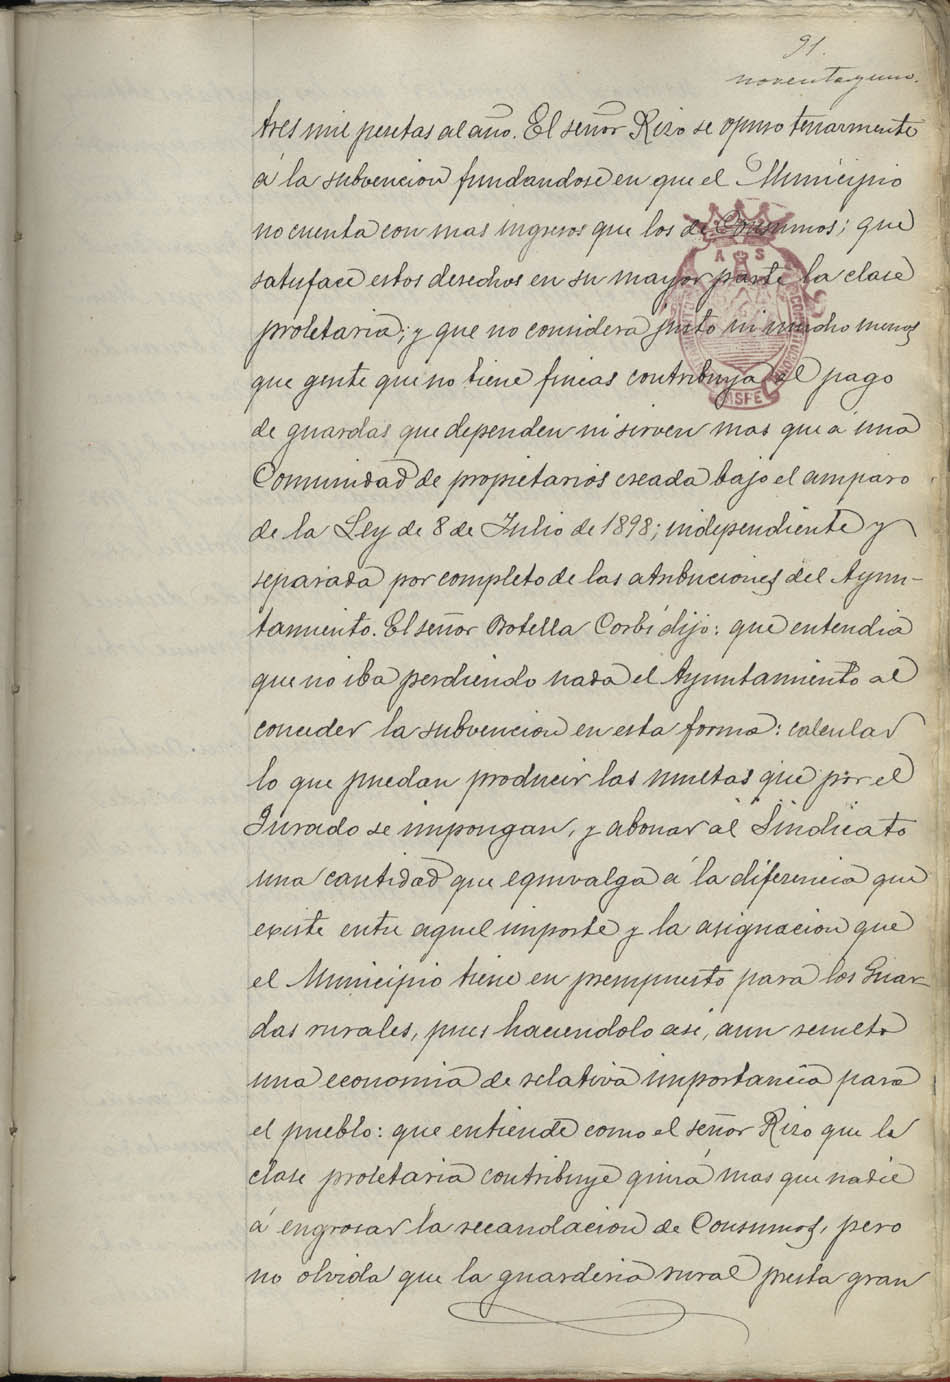 91.
noventa y uno.
tres mil pesetas al año. El señor Rizo se opuso tenazmente
á la subvencion fundandose en que el Municipio
no cuenta con mas ingresos que los de Consumos; que
satisface estos derechos en su mayor parte la clase
proletaria; y que no considera justo ni mucho menos
que gente que no tiene fincas contribuya al pago
de guardas que dependen ni sirven mas que á una
Comunidad de propietarios creada bajo el amparo
de la Ley de 8 de Julio de 1898; independiente y
separada por completo de las atribuciones del Ayun-
tamiento. El señor Botella Corbí dijo: que entendia
que no iba perdiendo nada el Ayuntamiento al
conceder la subvencion en esta forma: calcular
lo que puedan producir las multas que por el
Jurado se impongan, y abonar al Sindicato
una cantidad que equivalga á la diferencia que
existe entre aquel importe y la asignacion que
el Municipio tiene en presupuesto para los Guar-
das rurales, pues haciendolo asi, aun resulta
una economia de relativa importancia para
el pueblo: que entiende como el señor Rizo que la
clase proletaria contribuye quizá mas que nadie
á engrosar la recaudacion de Consumos, pero
no olvida que la guarderia rural presta gran
A S
CONSTITUCIONAL
ASPE